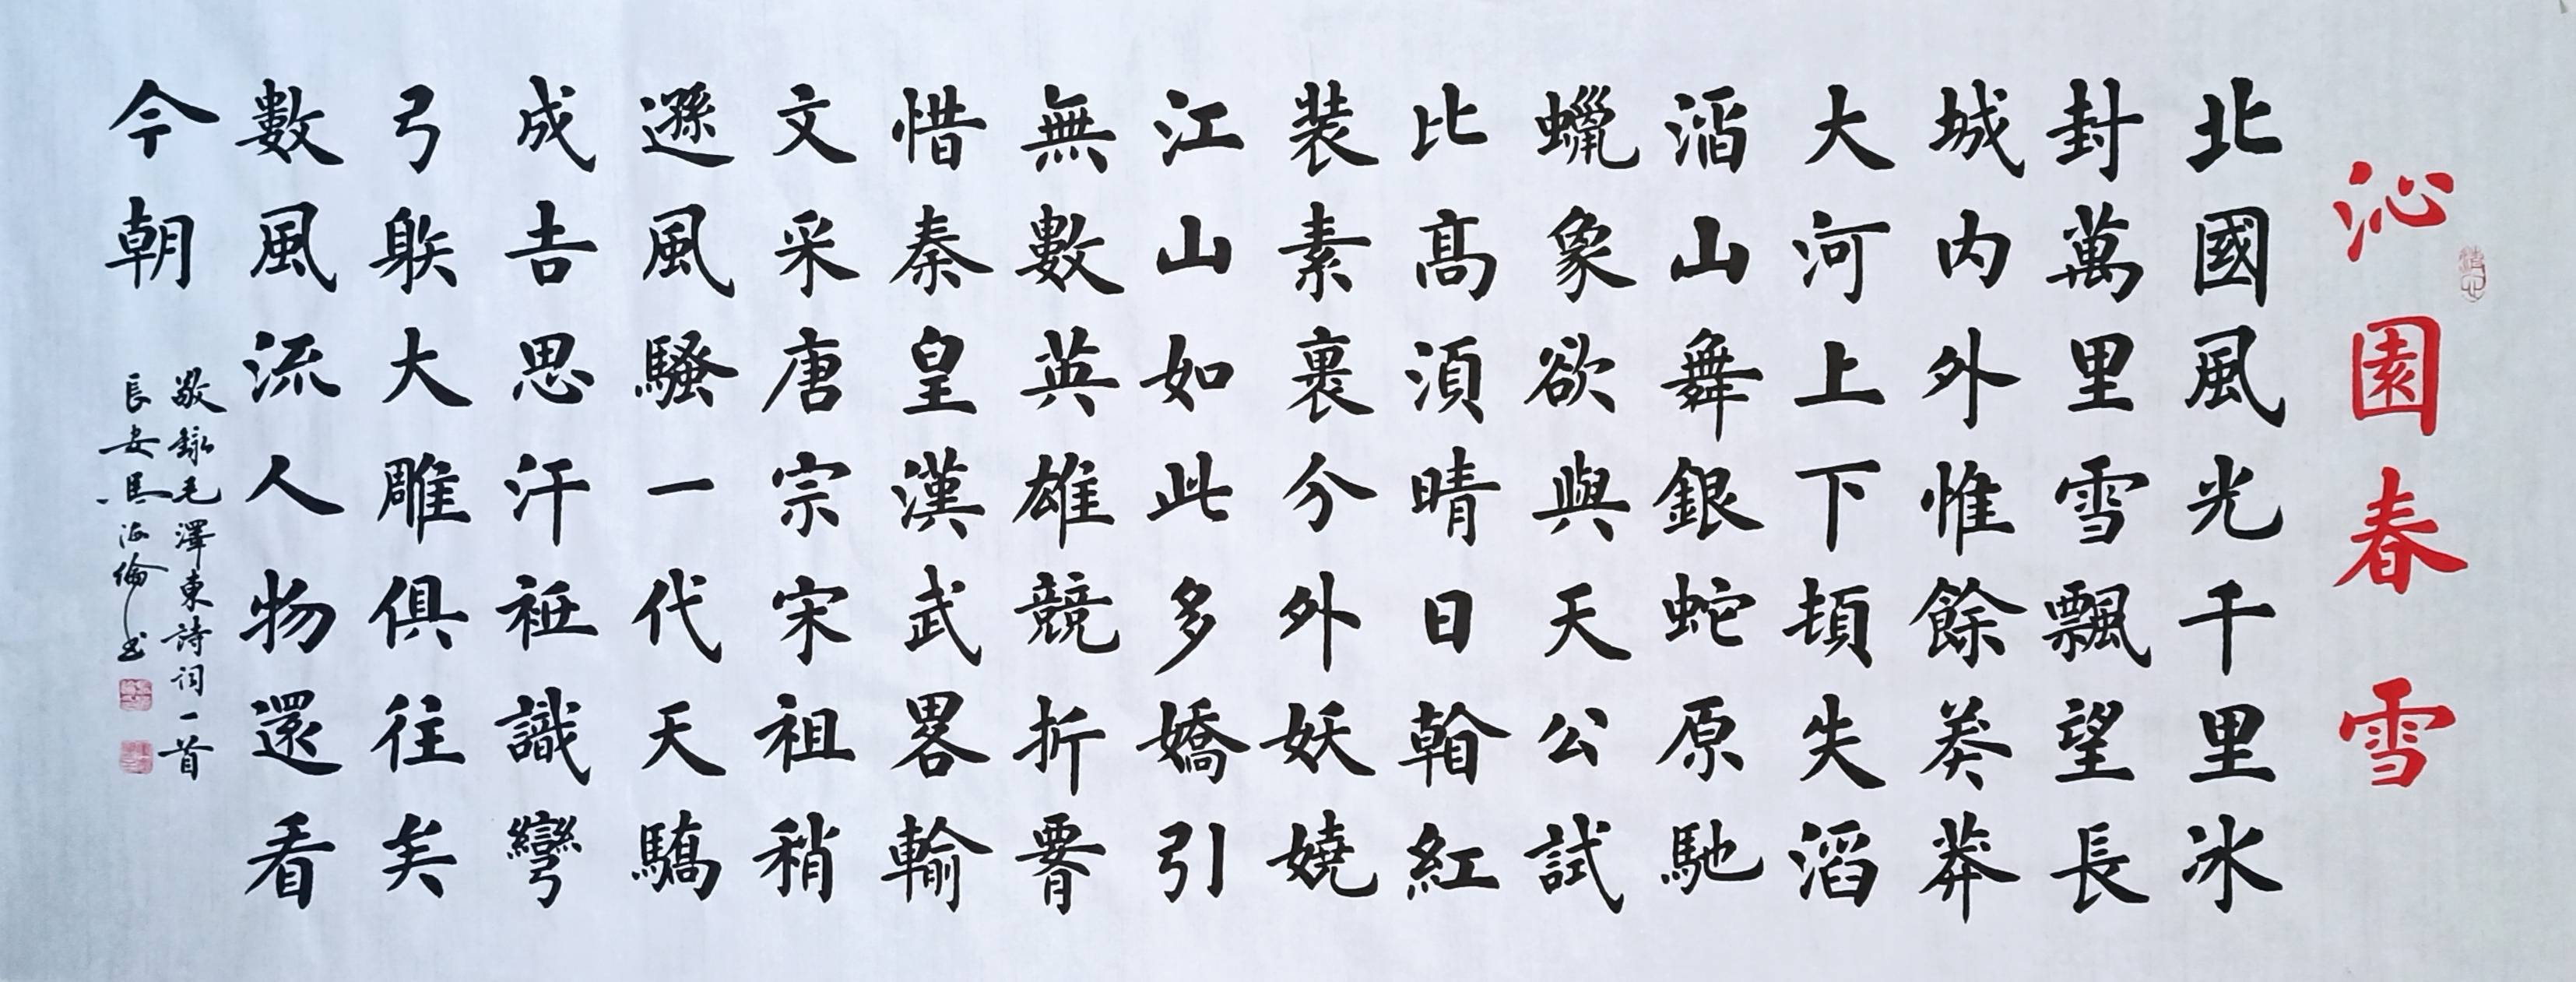 沁園春雪
北國風光千里冰
封萬里雪飄望長
城内外惟餘莽莽
大河上下頓失滔
滔山舞銀蛇原馳
蠟象欲與天公試
比髙湏晴日看紅
装素裹分外妖嬈
江山如此多嬌引
無數英雄競折腰
惜秦皇漢武畧輸
文采唐宗宋祖稍
遜風騷一代天驕
成吉思汗衹識彎
弓射大雕俱往矣
數風流人物還看
今朝
敬録毛澤東詩词一首
長安馬海倫书